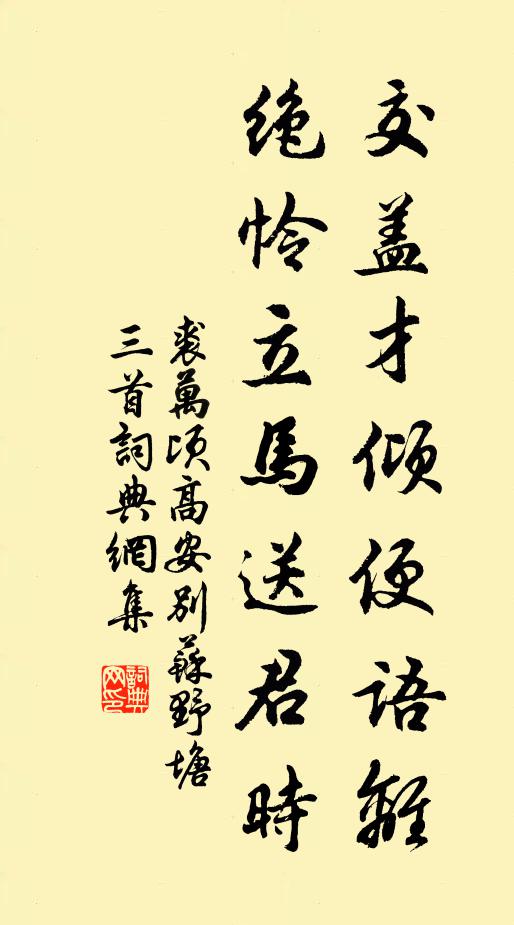 交盖才傾便語離
絶怜立馬送君時
裘萬頃高安别蘇野塘
三首詞典網集
詞典網印